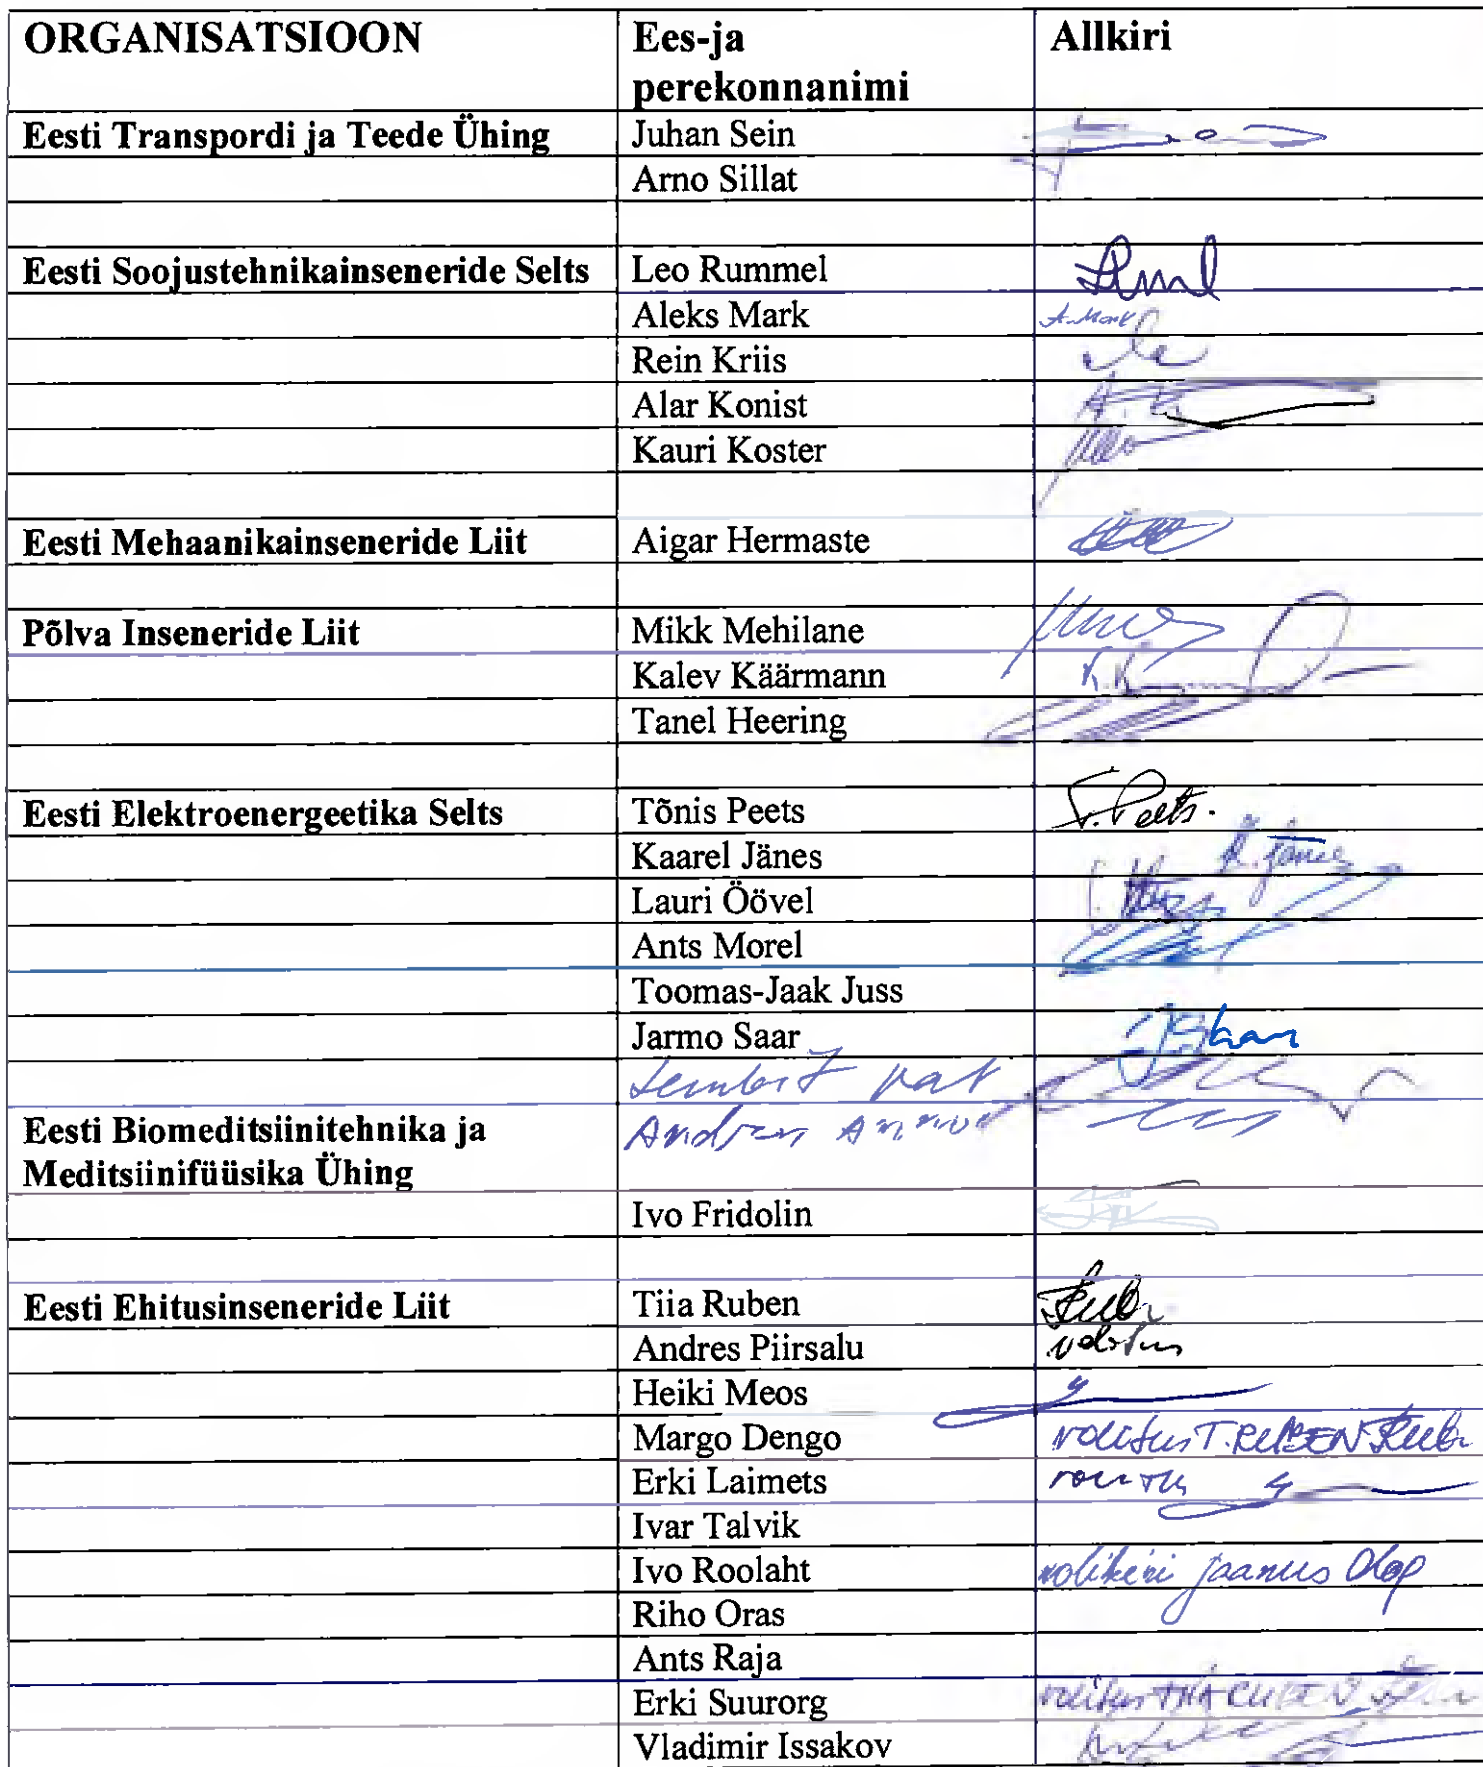 ORGANISATSIOON Ees-ja perekonnanimi Allkiri
Eesti Transpordi ja Teede Ühing Juhan Sein
Arno Sillat
Eesti Soojustehnikainseneride Selts Leo Rummel
Aleks Mark A. Mark
Rein Kriis
Alar Konist
Kauri Koster
Eesti Mehaanikainseneride Liit Aigar Hermaste
Põlva Inseneride Liit Mikk Mehilane
Kalev Käärmann
Tanel Heering
Eesti Elektroenergeetika Selts Tõnis Peets T. Peets.
Kaarel Jänes K. Jänes
Lauri Öövel
Ants Morel
Toomas-Jaak Juss
Jarmo Saar
Lembit Vat
Eesti Biomeditsiinitehnika ja Andrus
Meditsiinifüüsika Ühing
Ivo Fridolin
Eesti Ehitusinseneride Liit Tiia Ruben
Andres Piirsalu volitus
Heiki Meos
Margo Dengo volitus T. RUBEN
Erki Laimets
Ivar Talvik
Ivo Roolaht volikiri Jaanus Olop
Riho Oras
Ants Raja
Erki Suurorg volitus TIIA RUBEN
Vladimir Issakov